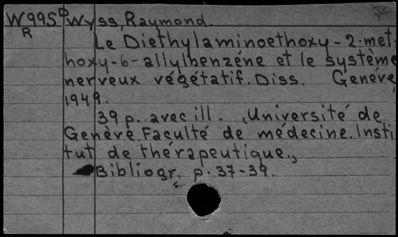 W995D Wyss, Raymond.
R
Le Diethylaminoethoxy-2-met-
hoxy-6-allylbenzéne et le système
nerveux végétatif. Diss. Genéve,
1949.
39 p. avec ill. (Université de
Genève. Faculté de médecine. Insti
tut de thérapeutique.,
Bibliogr. p. 37-39.